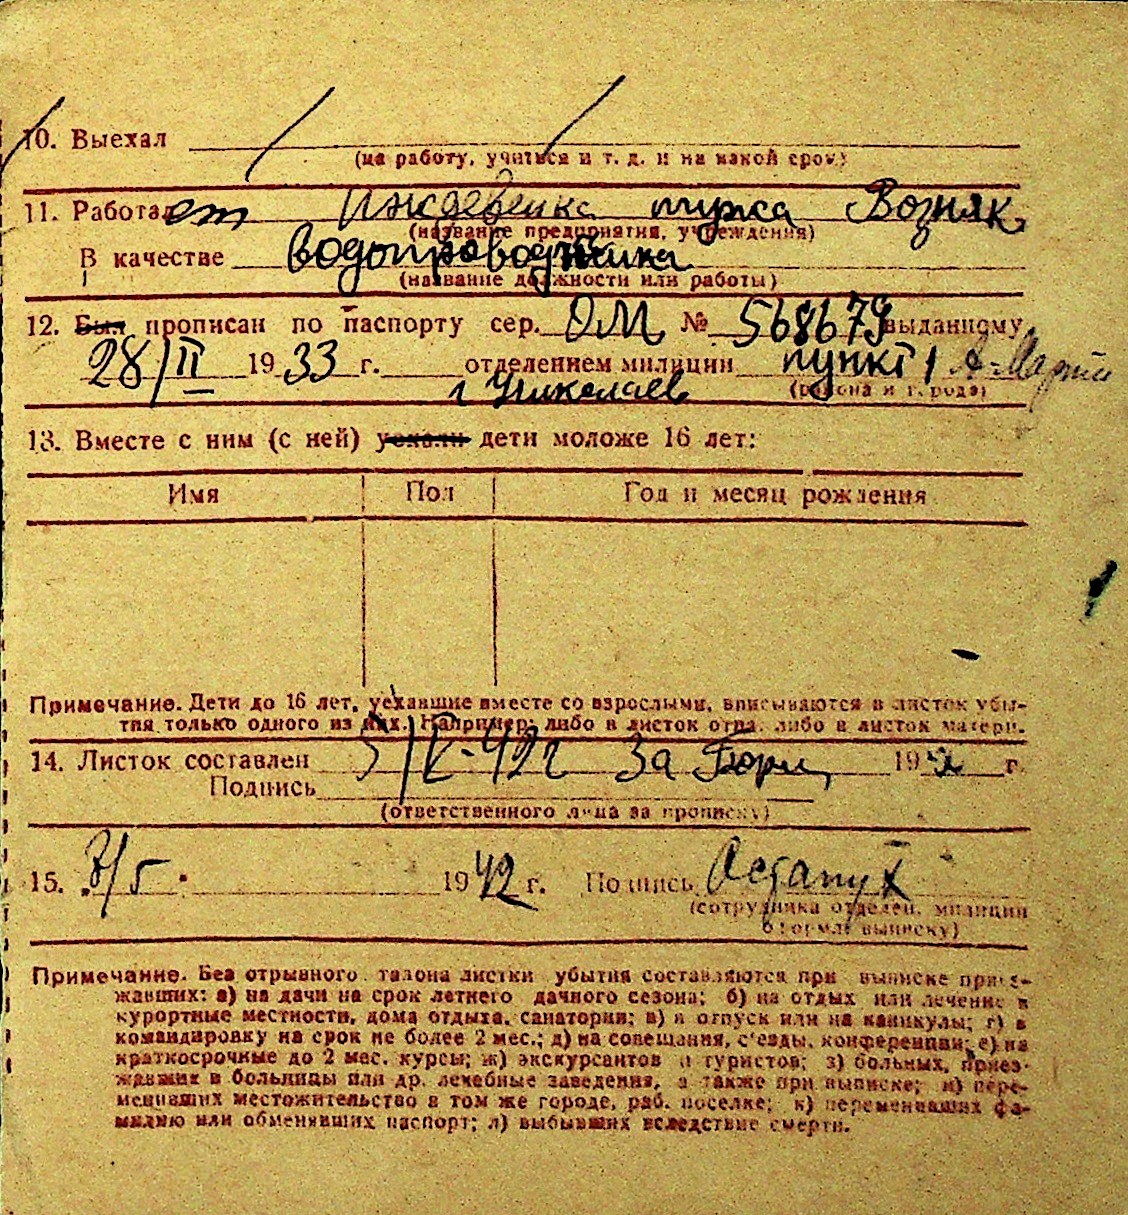 10. Выехал
(на работу, учиться и т. д. и на какой срок)
11. Работает Возняк
(название предприятия, учреждения)
В качестве водопроводчика
(название должности или работы)
12. Был прописан по паспорту сер. ОМ № 568679 выданному
28/II 1933 г. отделением милиции пункт 1
г Николаев (района и города)
13. Вместе с ним (с ней) уехали дети моложе 16 лет:
Имя Пол Год и месяц рождения
Примечание. Дети до 16 лет, уехавшие вместе со взрослыми, вписываются в листок убы-
тия только одного из них. Например: либо в листок отца, либо в листок матери.
14. Листок составлен 5/V-42г За 19 г.
Подпись
(ответственного лица за прописку)
15. 8/5 1942 г. Подпись Остапук
(сотрудника отделен. милиции
оформл выписку)
Примечание. Без отрывного талона листки убытия составляются при выписке приез-
жавших: а) на дачи на срок летнего дачного сезона; б) на отдых или лечение в
курортные местности, дома отдыха, санатории; в) в отпуск или на каникулы; г) в
командировку на срок не более 2 мес.; д) на совещания, с'езды, конференции; е) на
краткосрочные до 2 мес. курсы; ж) экскурсантов и туристов; з) больных, приез-
жавших в больницы или др. лечебные заведения, а также при выписке; и) пере-
менивших местожительство в том же городе, раб. поселке; к) переменивших фа-
милию или обменявших паспорт; л) выбывших вследствие смерти.